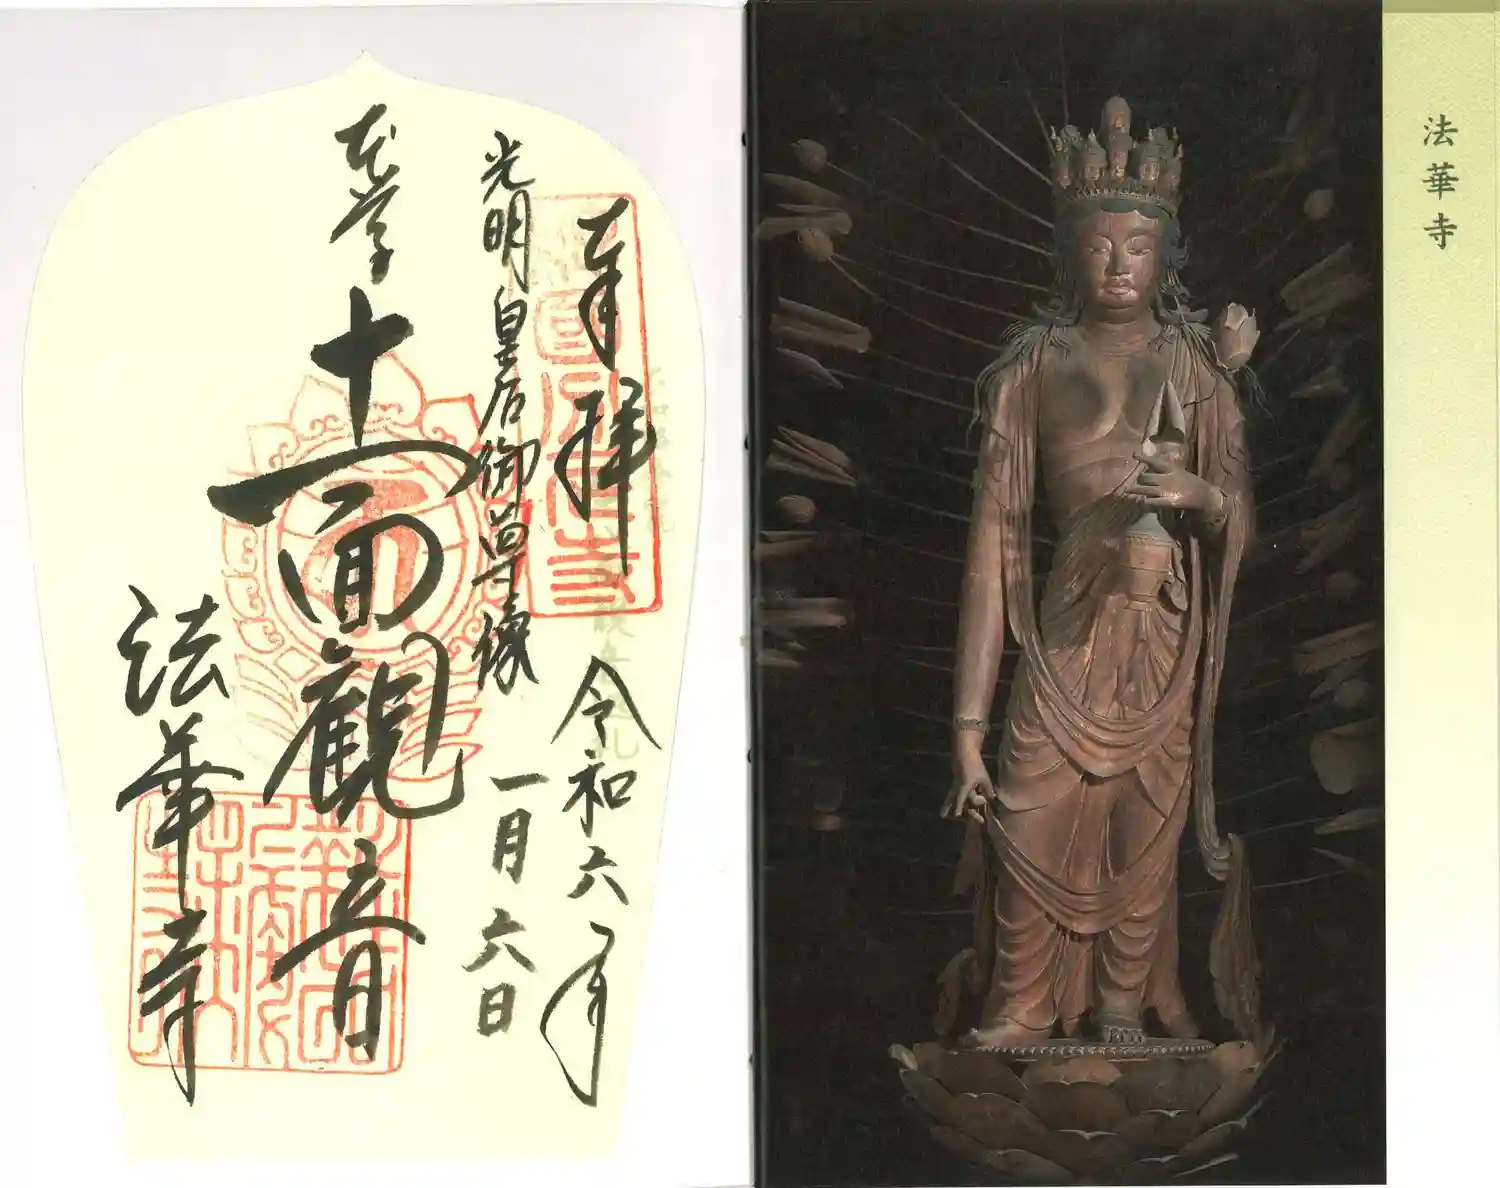 法華寺
奉拝
令和六年
一月六日
光明皇后御尊像
本尊
十一面観音
法華寺